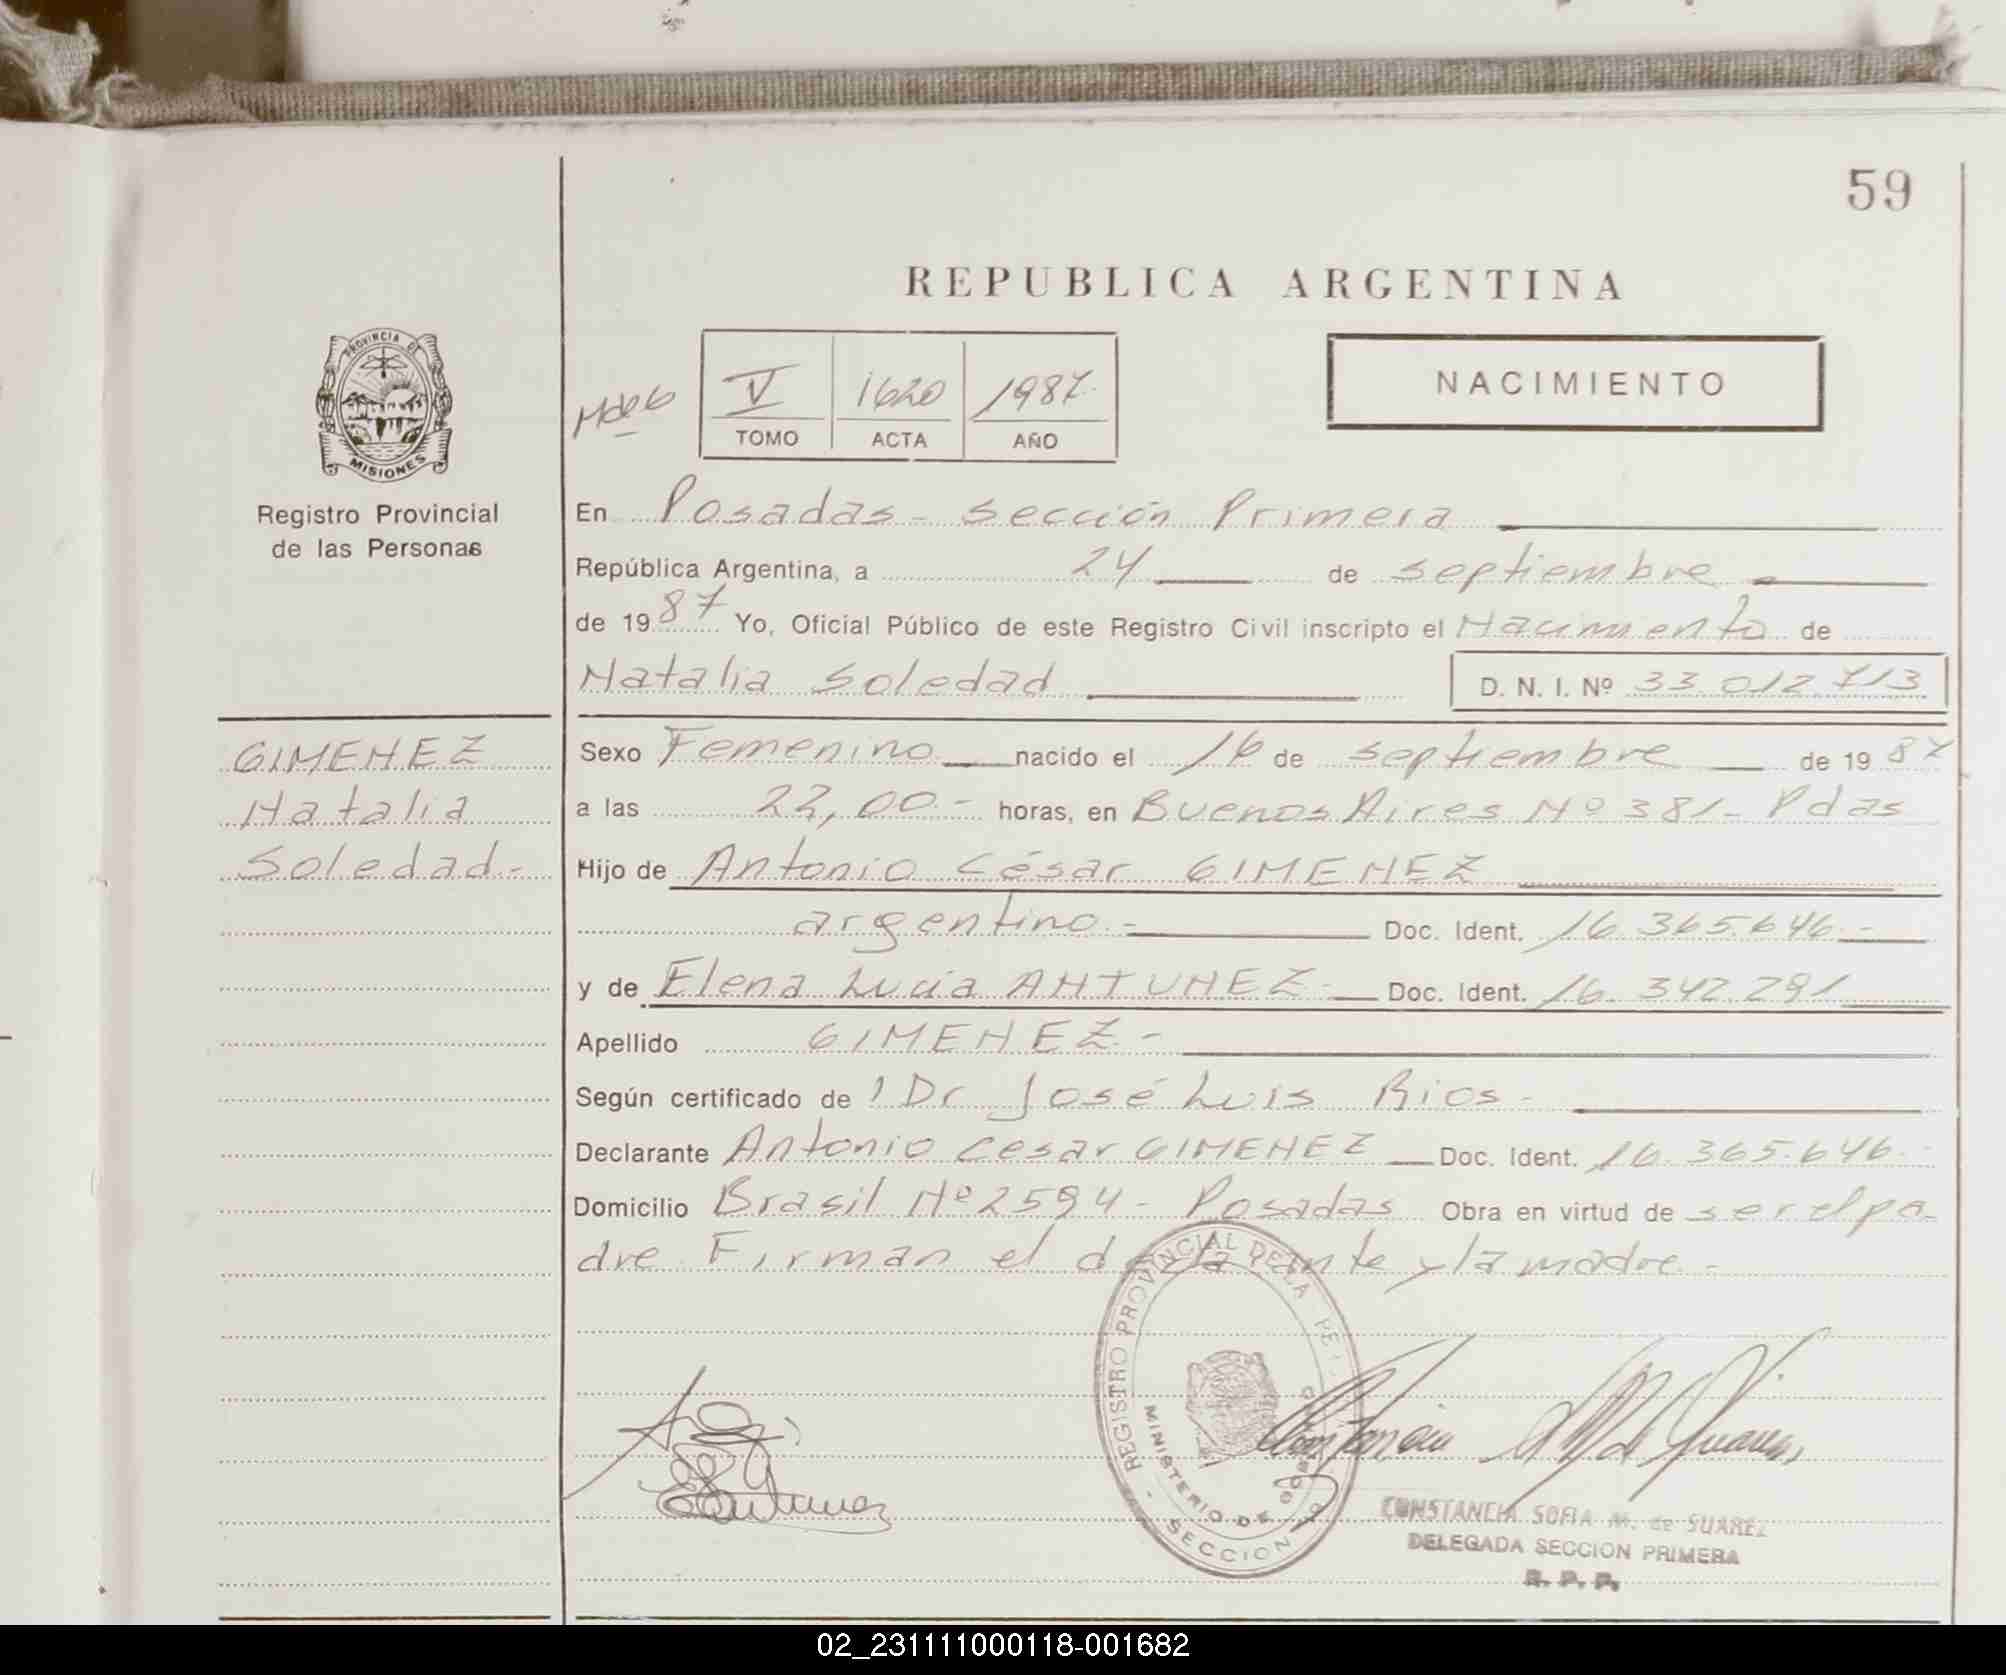 59
REPUBLICA ARGENTINA
PROVINCIA DE
MISIONES
Registro Provincial
de las Personas
V 1620 1987.
TOMO ACTA AÑO
NACIMIENTO
En Posadas - Sección Primera
República Argentina, a 24 de septiembre
de 1987 Yo, Oficial Público de este Registro Civil inscripto el Nacimiento de
Natalia Soledad D. N. I. Nº 33.012.713
GIMENEZ
Natalia
Soledad.-
Sexo Femenino nacido el 16 de septiembre de 1987
a las 22,00.- horas, en Buenos Aires Nº 381- Pdas
Hijo de Antonio César GIMENEZ
argentino.- Doc. Ident. 16.365.646.-
y de Elena Lucía ANTUNEZ- Doc. Ident. 16.342.291
Apellido GIMENEZ.-
Según certificado de Dr José Luis Rios-
Declarante Antonio Cesar GIMENEZ Doc. Ident. 16.365.646.-
Domicilio Brasil Nº 2594- Posadas Obra en virtud de ser el pa-
dre. Firman el declarante y la madre.-
REGISTRO PROVINCIAL DE LA PE
MINISTERIO DE GOBIERNO
SECCION
CONSTANCIA SOFIA M. de SUAREZ
DELEGADA SECCION PRIMERA
R. P. P.
02_231111000118-001682